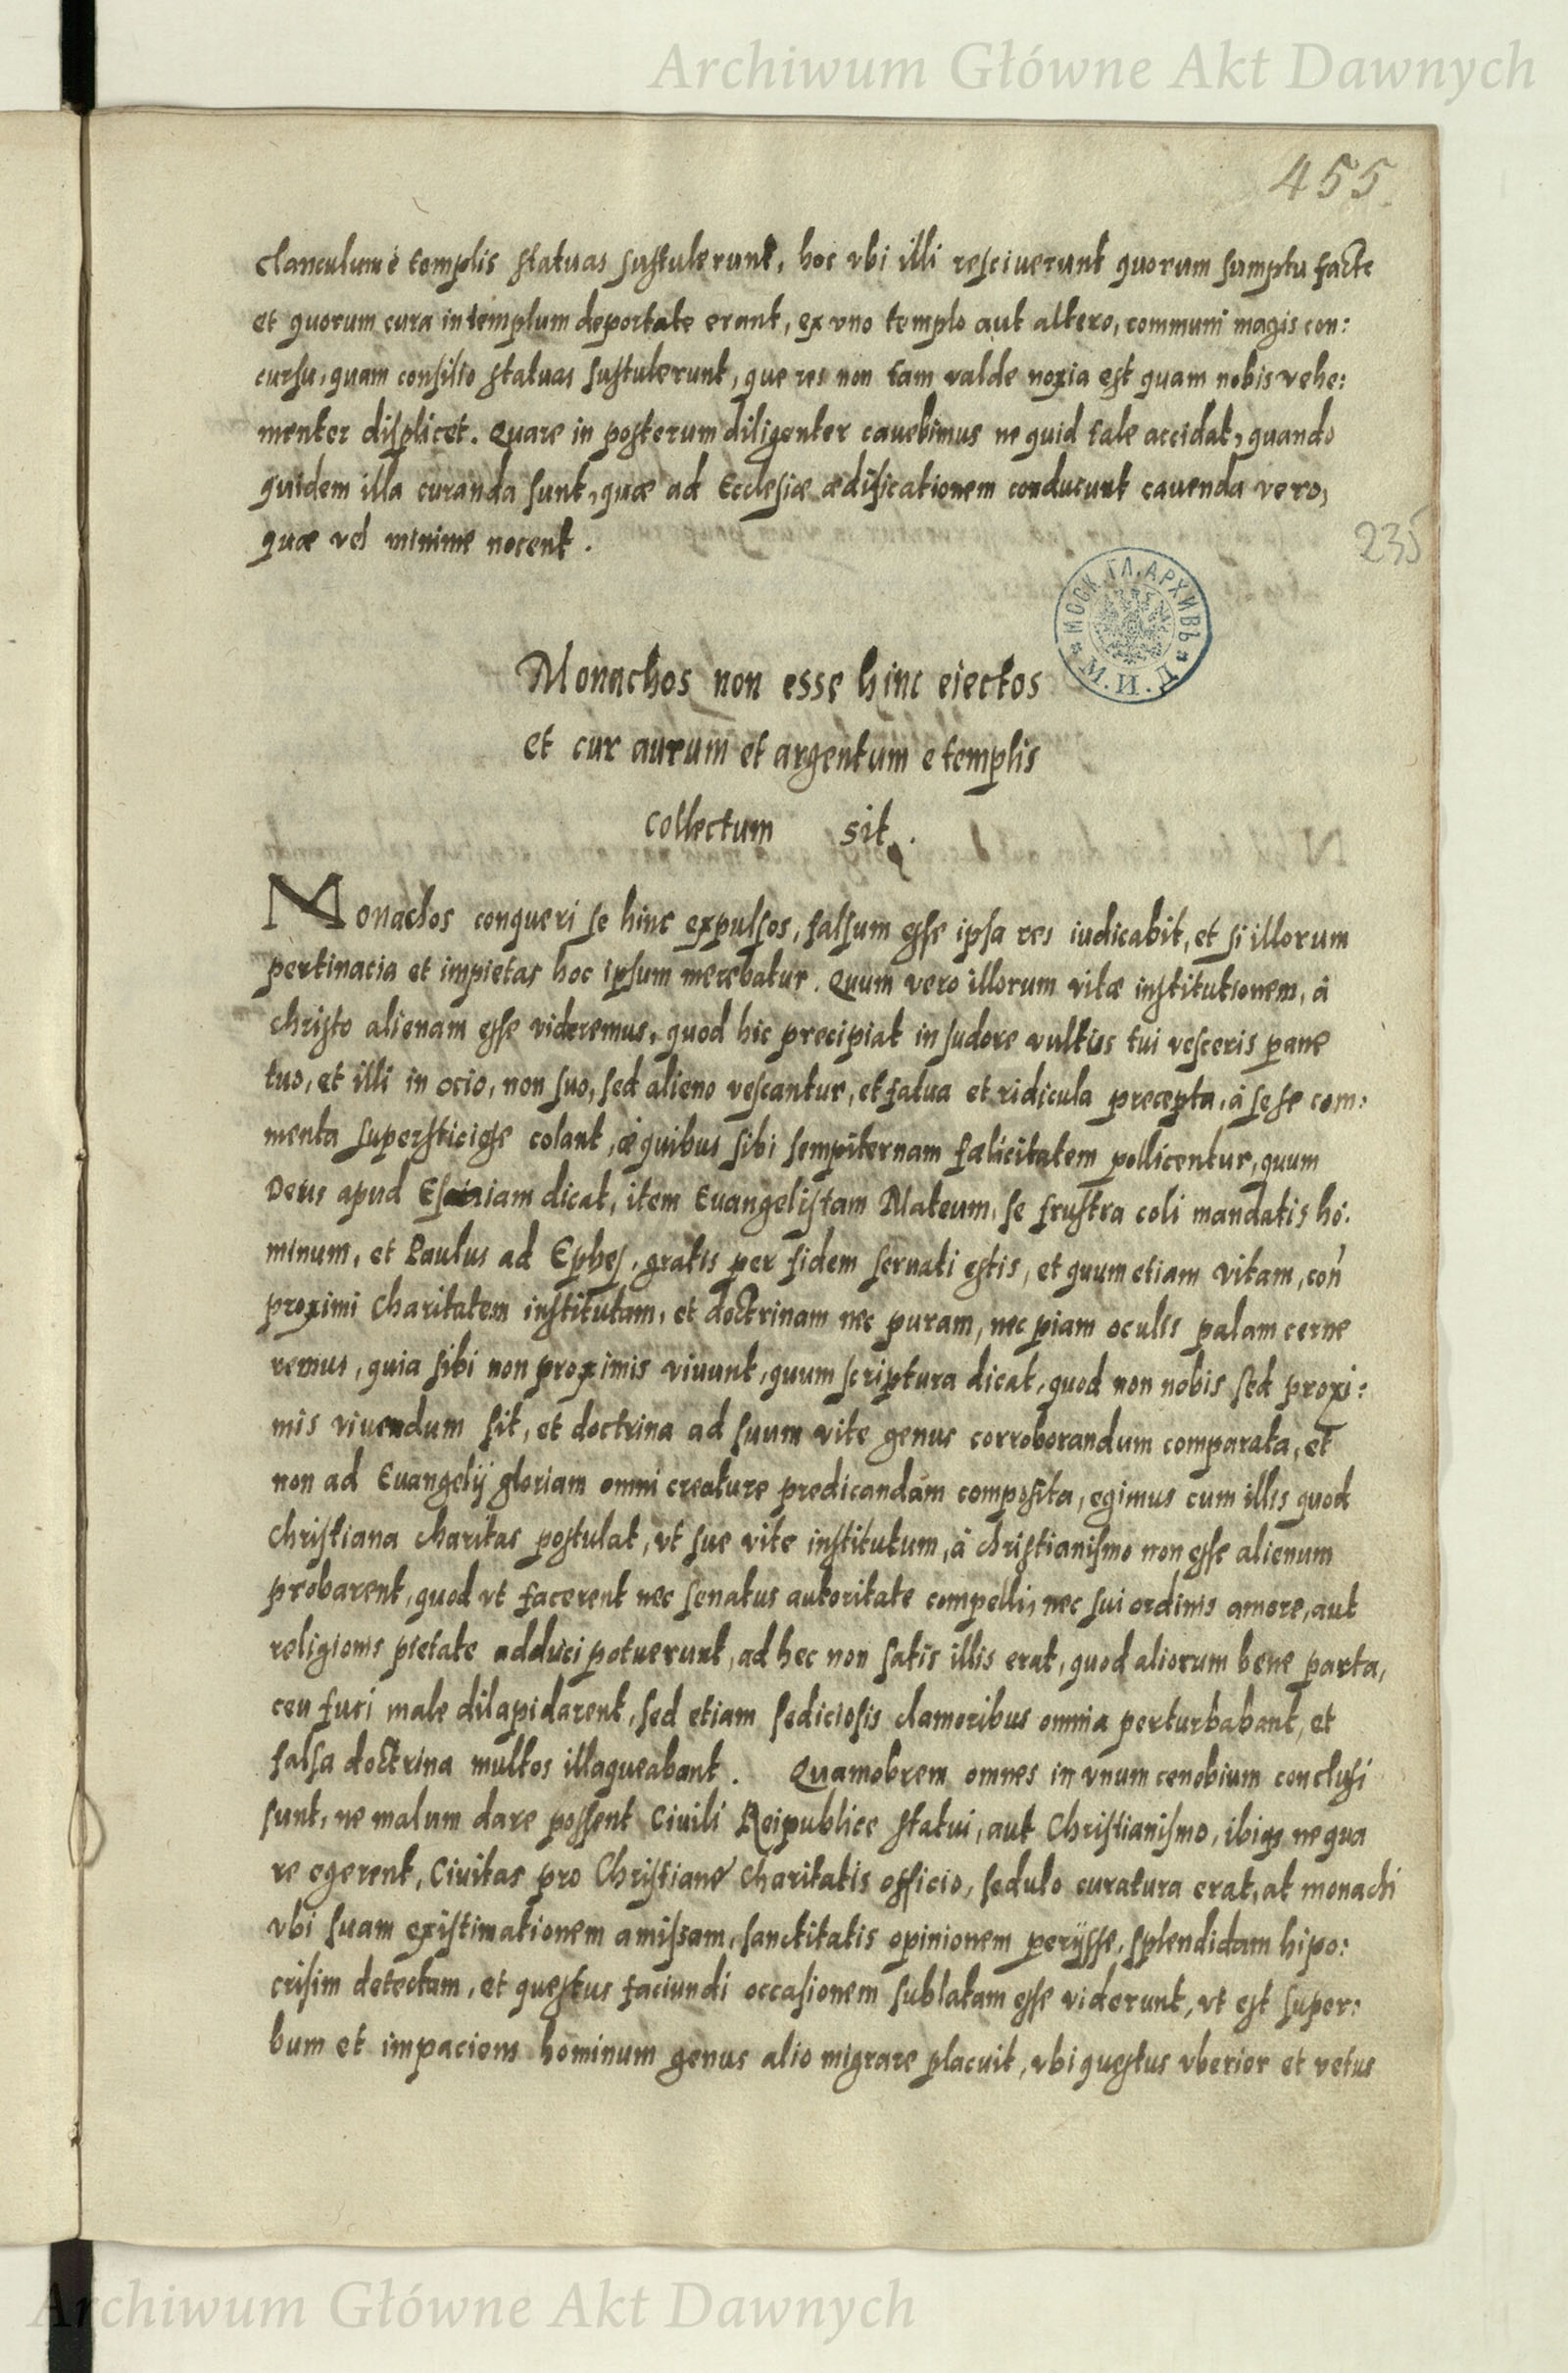 Archiwum Główne Akt Dawnych
455.
clanculum è templis statuas sustulerunt, hoc vbi illi resciuerunt quorum sumptu facte
et quorum cura in templum deportate erant, ex vno templo aut altero, communi magis con:
cursu, quam consilio statuas sustulerunt, que res non tam valde noxia est quam nobis vehe:
menter displicet. Quare in posterum diligenter cauebimus ne quid tale accidat, quando
quidem illa curanda sunt, quæ ad Ecclesiæ ædificationem conducunt cauenda vero,
quæ vel minime nocent.
235
МОСК. ГЛ. АРХИВЪ М.И.Д.
Monachos non esse hinc eiectos
et cur aurum et argentum e templis
collectum sit.
Monachos conqueri se hinc expulsos, falsum esse ipsa res iudicabit, et si illorum
pertinacia et impietas hoc ipsum merebatur. Quum vero illorum vitæ institutionem, à
christo alienam esse videremus, quod hic precipiat in sudore vultus tui vesceris pane
tuo, et illi in ocio, non suo, sed alieno vescantur, et fatua et ridicula precepta, à sese com:
menta supersticiose colant, è quibus sibi sempiternam fælicitatem pollicentur, quum
Deus apud Esaiam dicat, item Euangelistam Mateum, se frustra coli mandatis ho:
minum, et Paulus ad Ephes, gratis per fidem seruati estis, et quum etiam vitam, con
proximi charitatem institutam, et doctrinam nec puram, nec piam oculis palam cerne
remus, quia sibi non proximis viuunt, quum scriptura dicat, quod non nobis sed proxi:
mis viuendum sit, et doctrina ad suum vite genus corroborandum comparata, et
non ad Euangelij gloriam omni creature predicandam composita, egimus cum illis quod
christiana charitas postulat, vt sue vite institutum, à christianismo non esse alienum
probarent, quod vt facerent nec senatus autoritate compelli, nec sui ordinis amore, aut
religionis pietate adduci potuerunt, ad hec non satis illis erat, quod aliorum bene parta,
ceu fuci male dilapidarent, sed etiam sediciosis clamoribus omnia perturbabant, et
falsa doctrina multos illaqueabant. Quamobrem omnes in vnum cenobium conclusi
sunt, ne malum dare possent Ciuili Reipublice statui, aut Christianismo, ibiqs ne qua
re egerent, Ciuitas pro Christiane charitatis officio, sedulo curatura erat, at monachi
vbi suam existimationem amissam, sanctitatis opinionem perijsse, splendidam hipo:
crisim detectam, et questus faciundi occasionem sublatam esse viderunt, vt est super:
bum et impaciens hominum genus alio migrare placuit, vbi questus vberior et vetus
Archiwum Główne Akt Dawnych